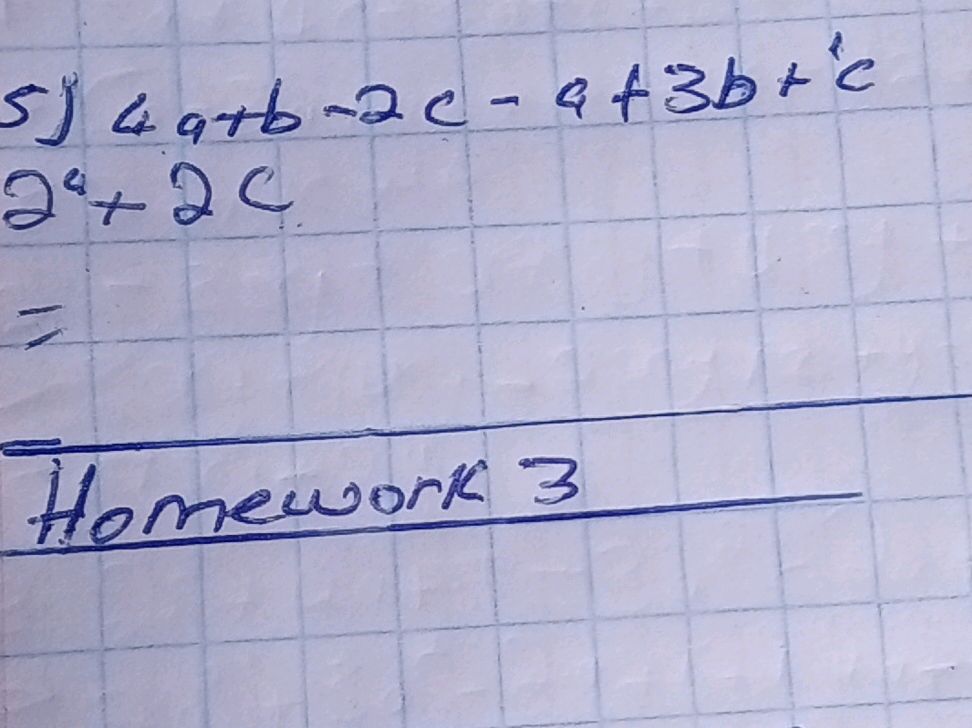 5) 4a+b-2c-a+3b+1c
2a+2c
=
Homework 3